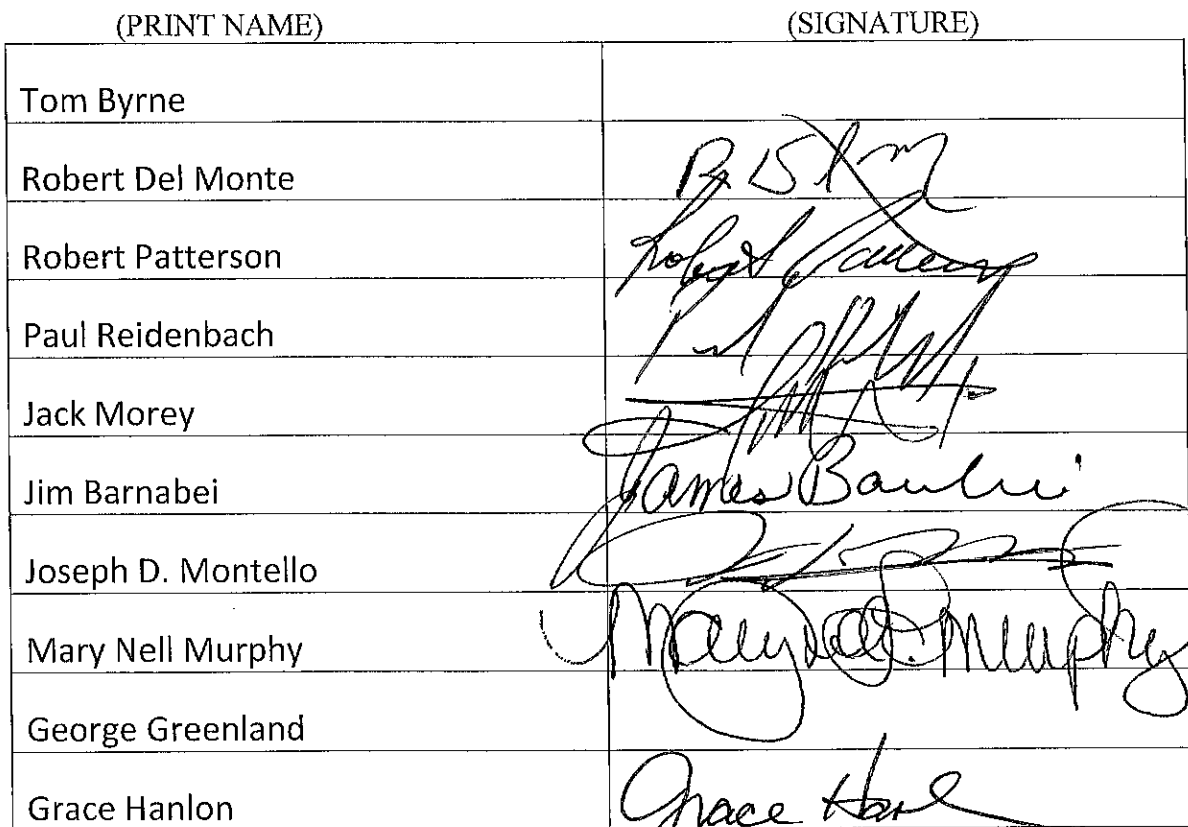 (PRINT NAME) (SIGNATURE)
Tom Byrne
Robert Del Monte
Robert Patterson Robert
Paul Reidenbach Paul
Jack Morey
Jim Barnabei James
Joseph D. Montello
Mary Nell Murphy Mary Murphy
George Greenland
Grace Hanlon Grace